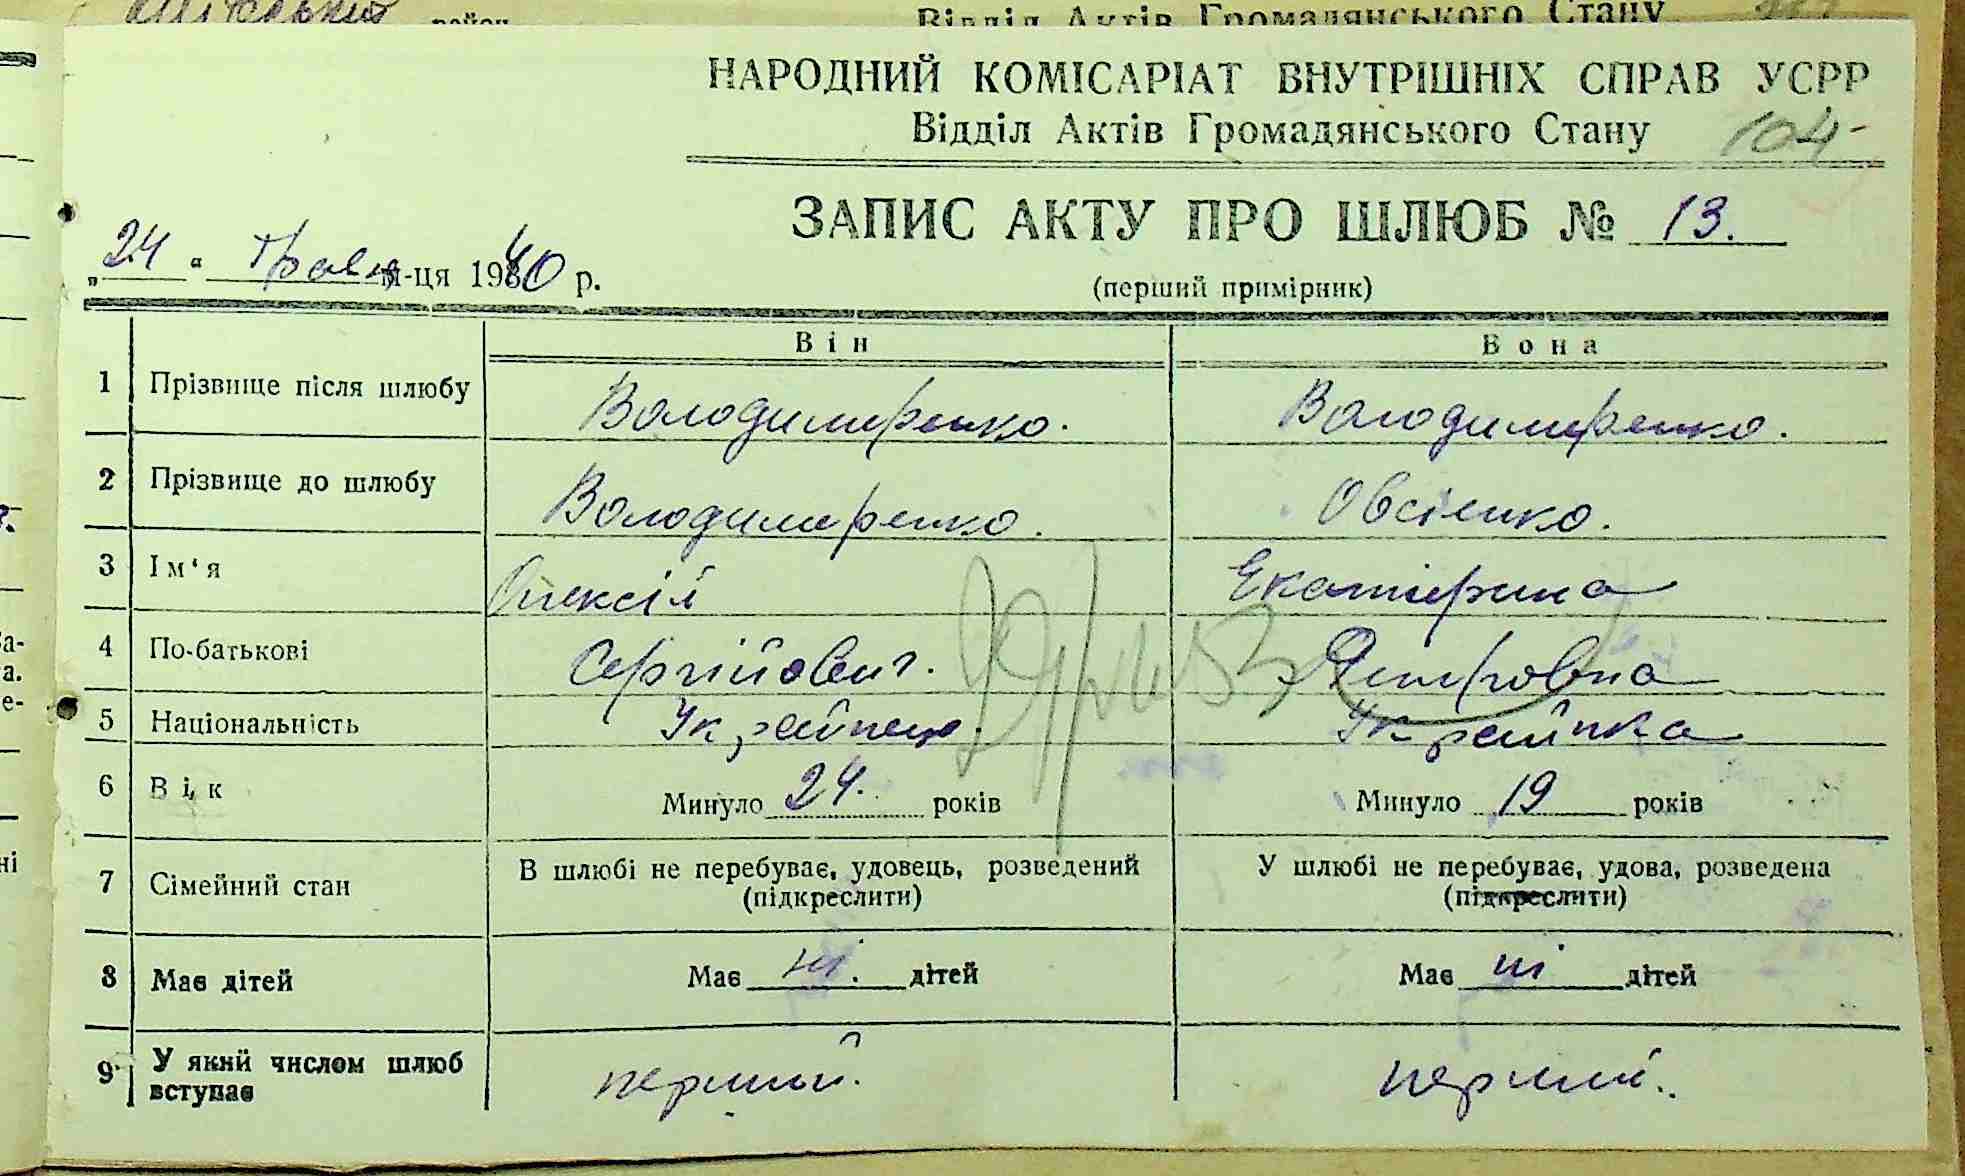 район
Відділ Актів Громадянського Стану
НАРОДНИЙ КОМІСАРІАТ ВНУТРІШНІХ СПРАВ УСРР
Відділ Актів Громадянського Стану 104
ЗАПИС АКТУ ПРО ШЛЮБ № 13.
„24" Травня м-ця 1940 р.
(перший примірник)
Він Вона
1 Прізвище після шлюбу Володимиренко. Володимиренко.
2 Прізвище до шлюбу Володимиренко. Овсієнко.
3 Ім'я Олексій Екатерина
4 По-батькові Сергійович. Петровна
5 Національність Українець. Українка
6 Вік Минуло 24. років Минуло 19 років
7 Сімейний стан В шлюбі не перебуває, удовець, розведений (підкреслити) У шлюбі не перебуває, удова, розведена (підкреслити)
8 Має дітей Має ні. дітей Має ні дітей
9 У який числом шлюб вступає перший. перший.